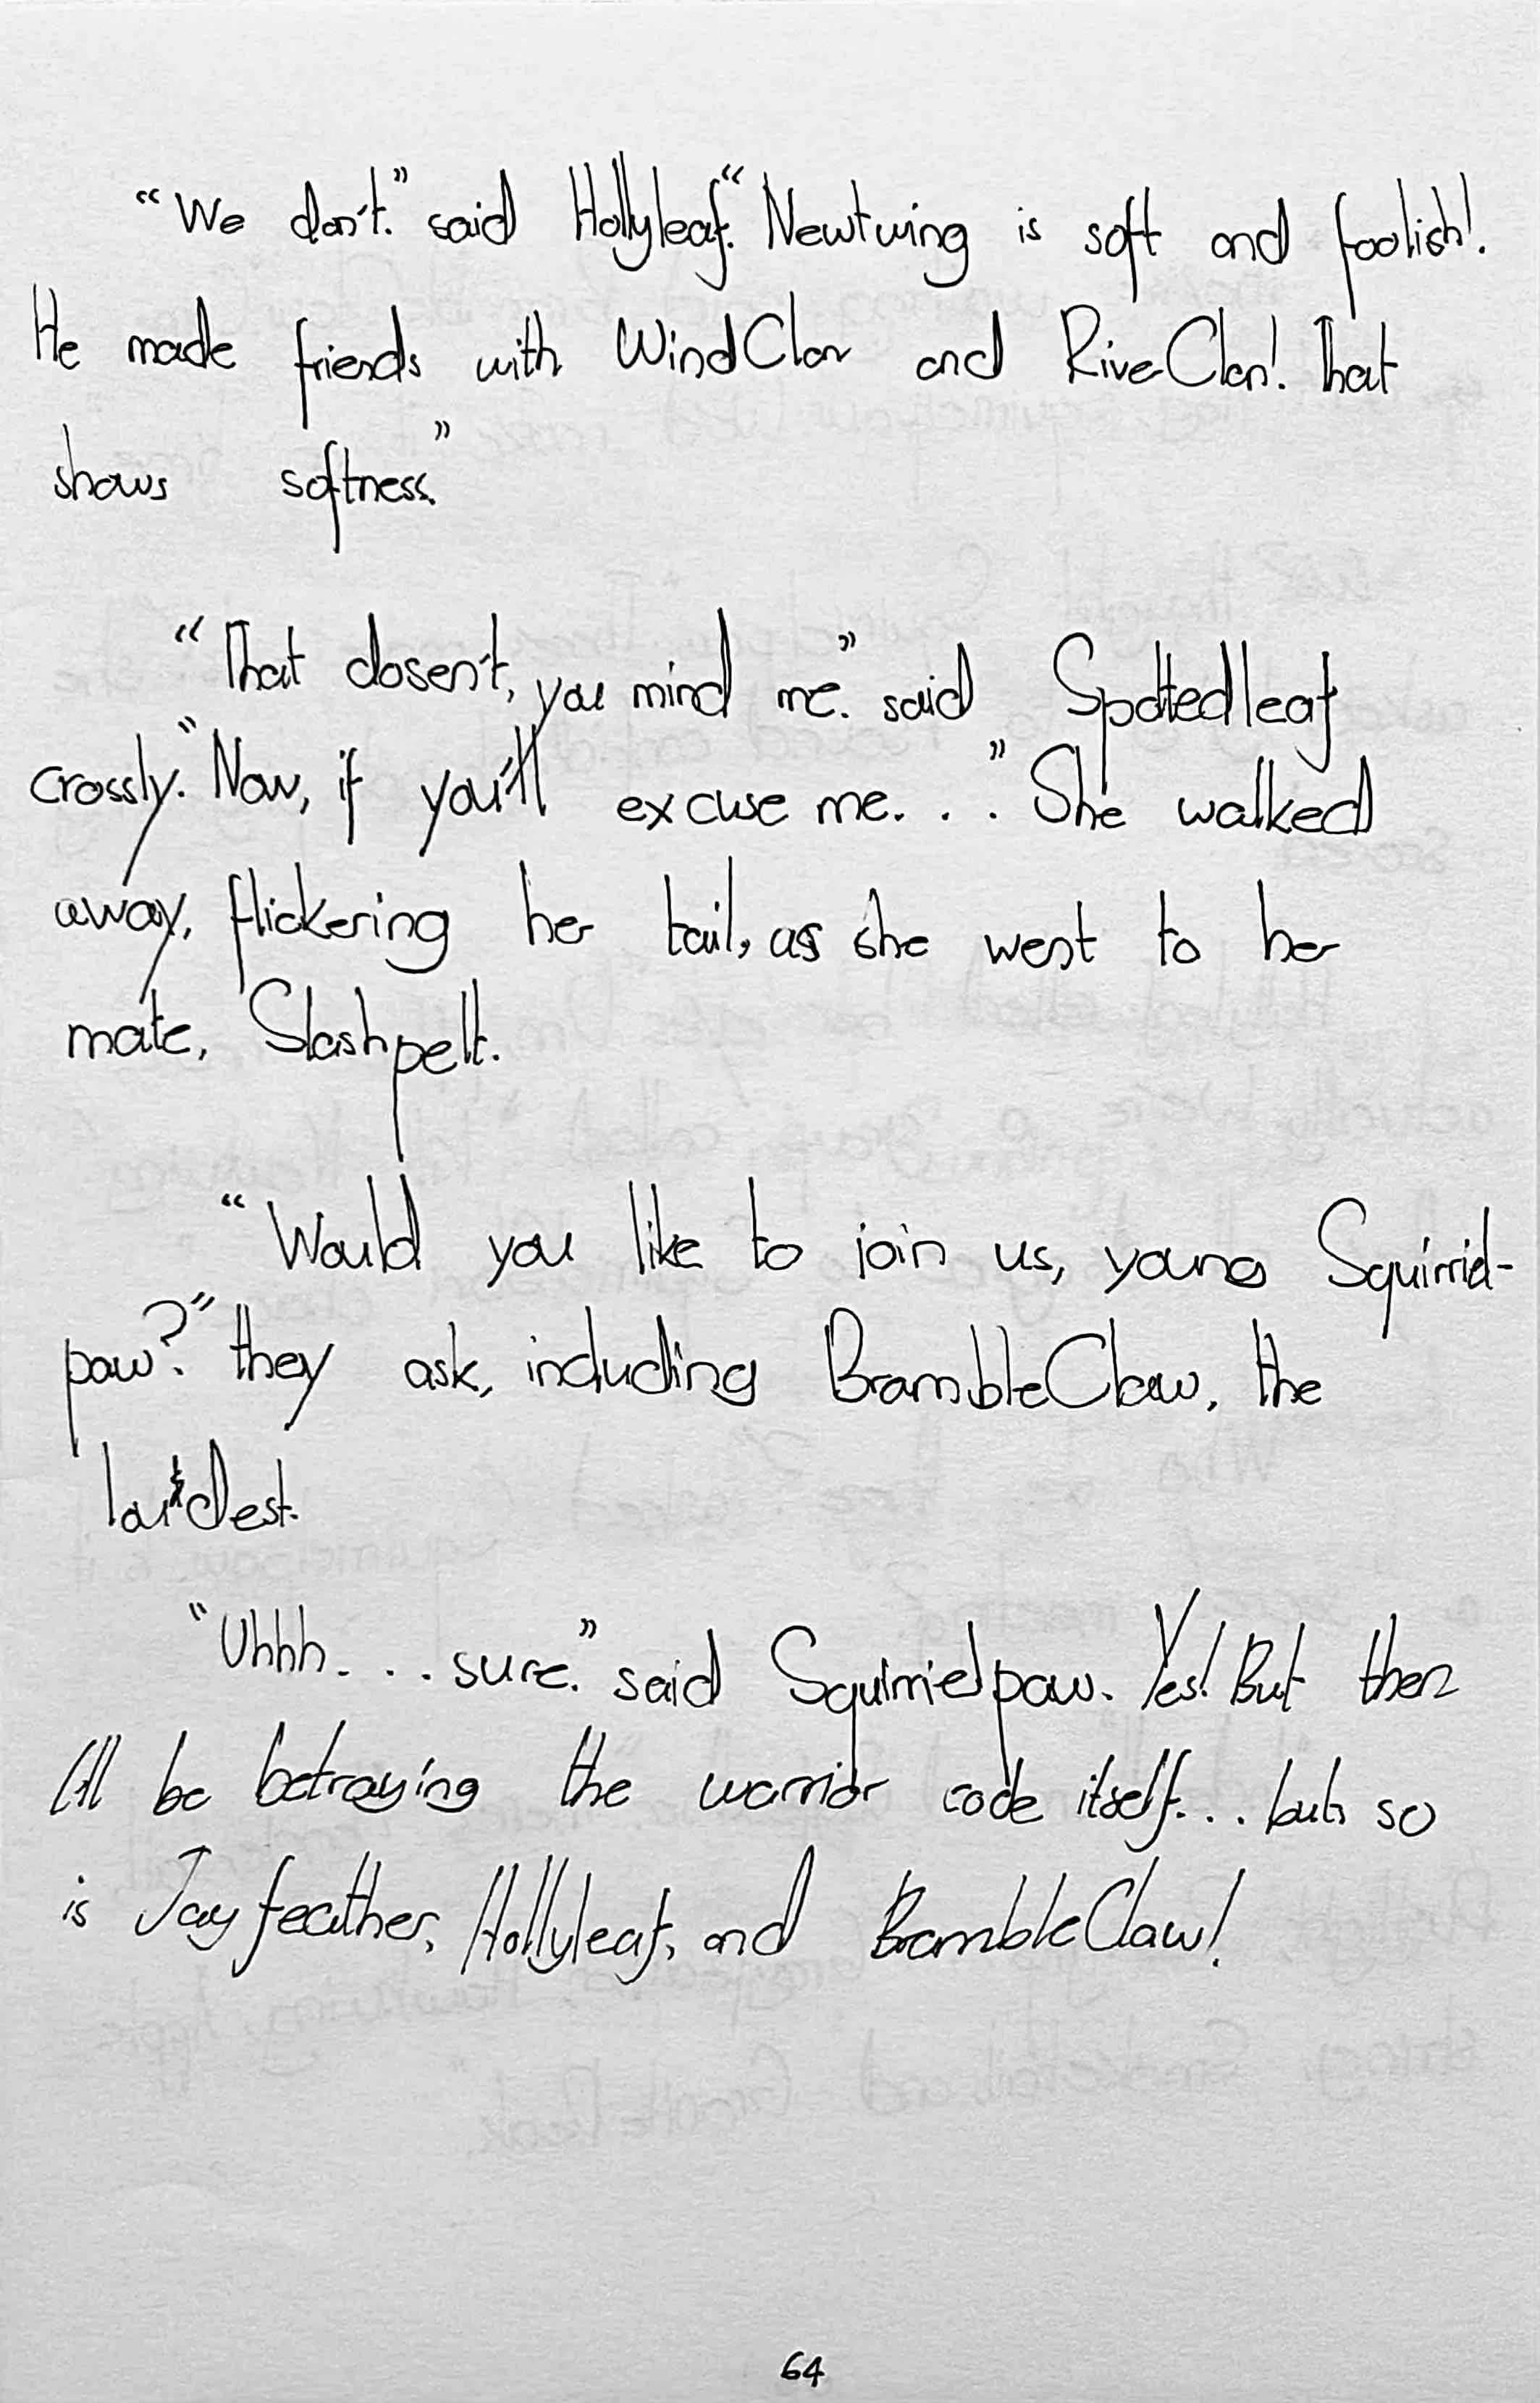 “We don't.” said Hollyleaf. “Newtwing is soft and foolish!
He made friends with WindClan and RiverClan! That
shows softness.”
“That dosen't, you mind me.” said Spottedleaf
crossly. “Now, if you'll excuse me. . .” She walked
away, flickering her tail, as she went to her
mate, Slashpelt.
“Would you like to join us, young Squirrel-
paw?” they ask, including BrambleClaw, the
loudest.
“Uhhh. . . sure.” said Squirrelpaw. Yes! But then
I'll be betraying the warrior code itself. . . but so
is Jayfeather, Hollyleaf, and BrambleClaw!
64